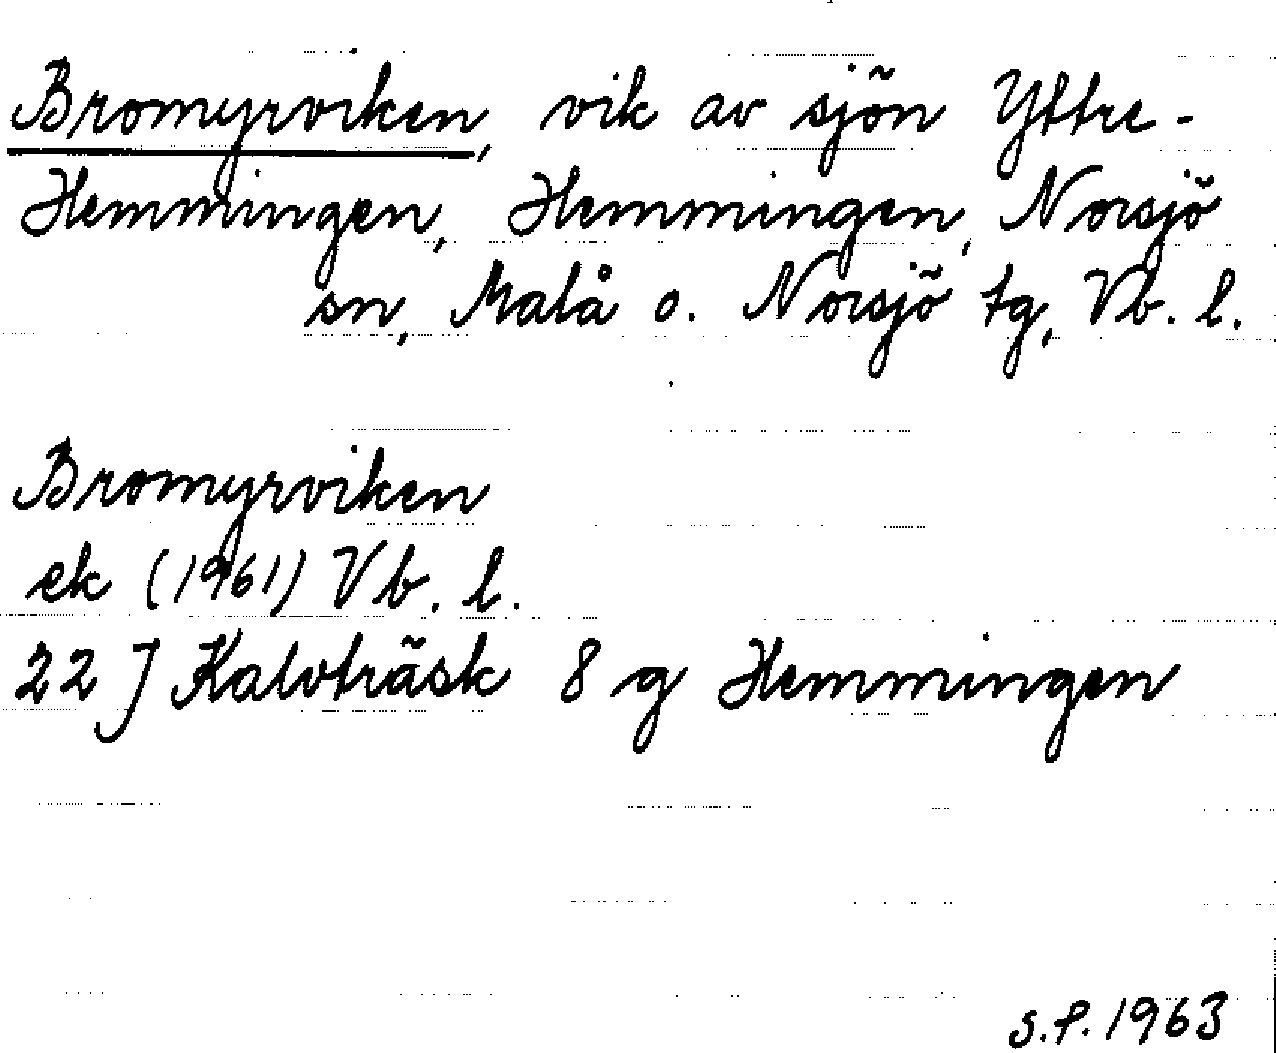 Bromyrviken, vik av sjön Yttre-
Hemmingen, Hemmingen, Norsjö
sn, Malå o. Norsjö tg, Vb. l.
Bromyrviken
ek (1961) Vb. l.
22 J Kalvträsk 8 g Hemmingen
S.P. 1963